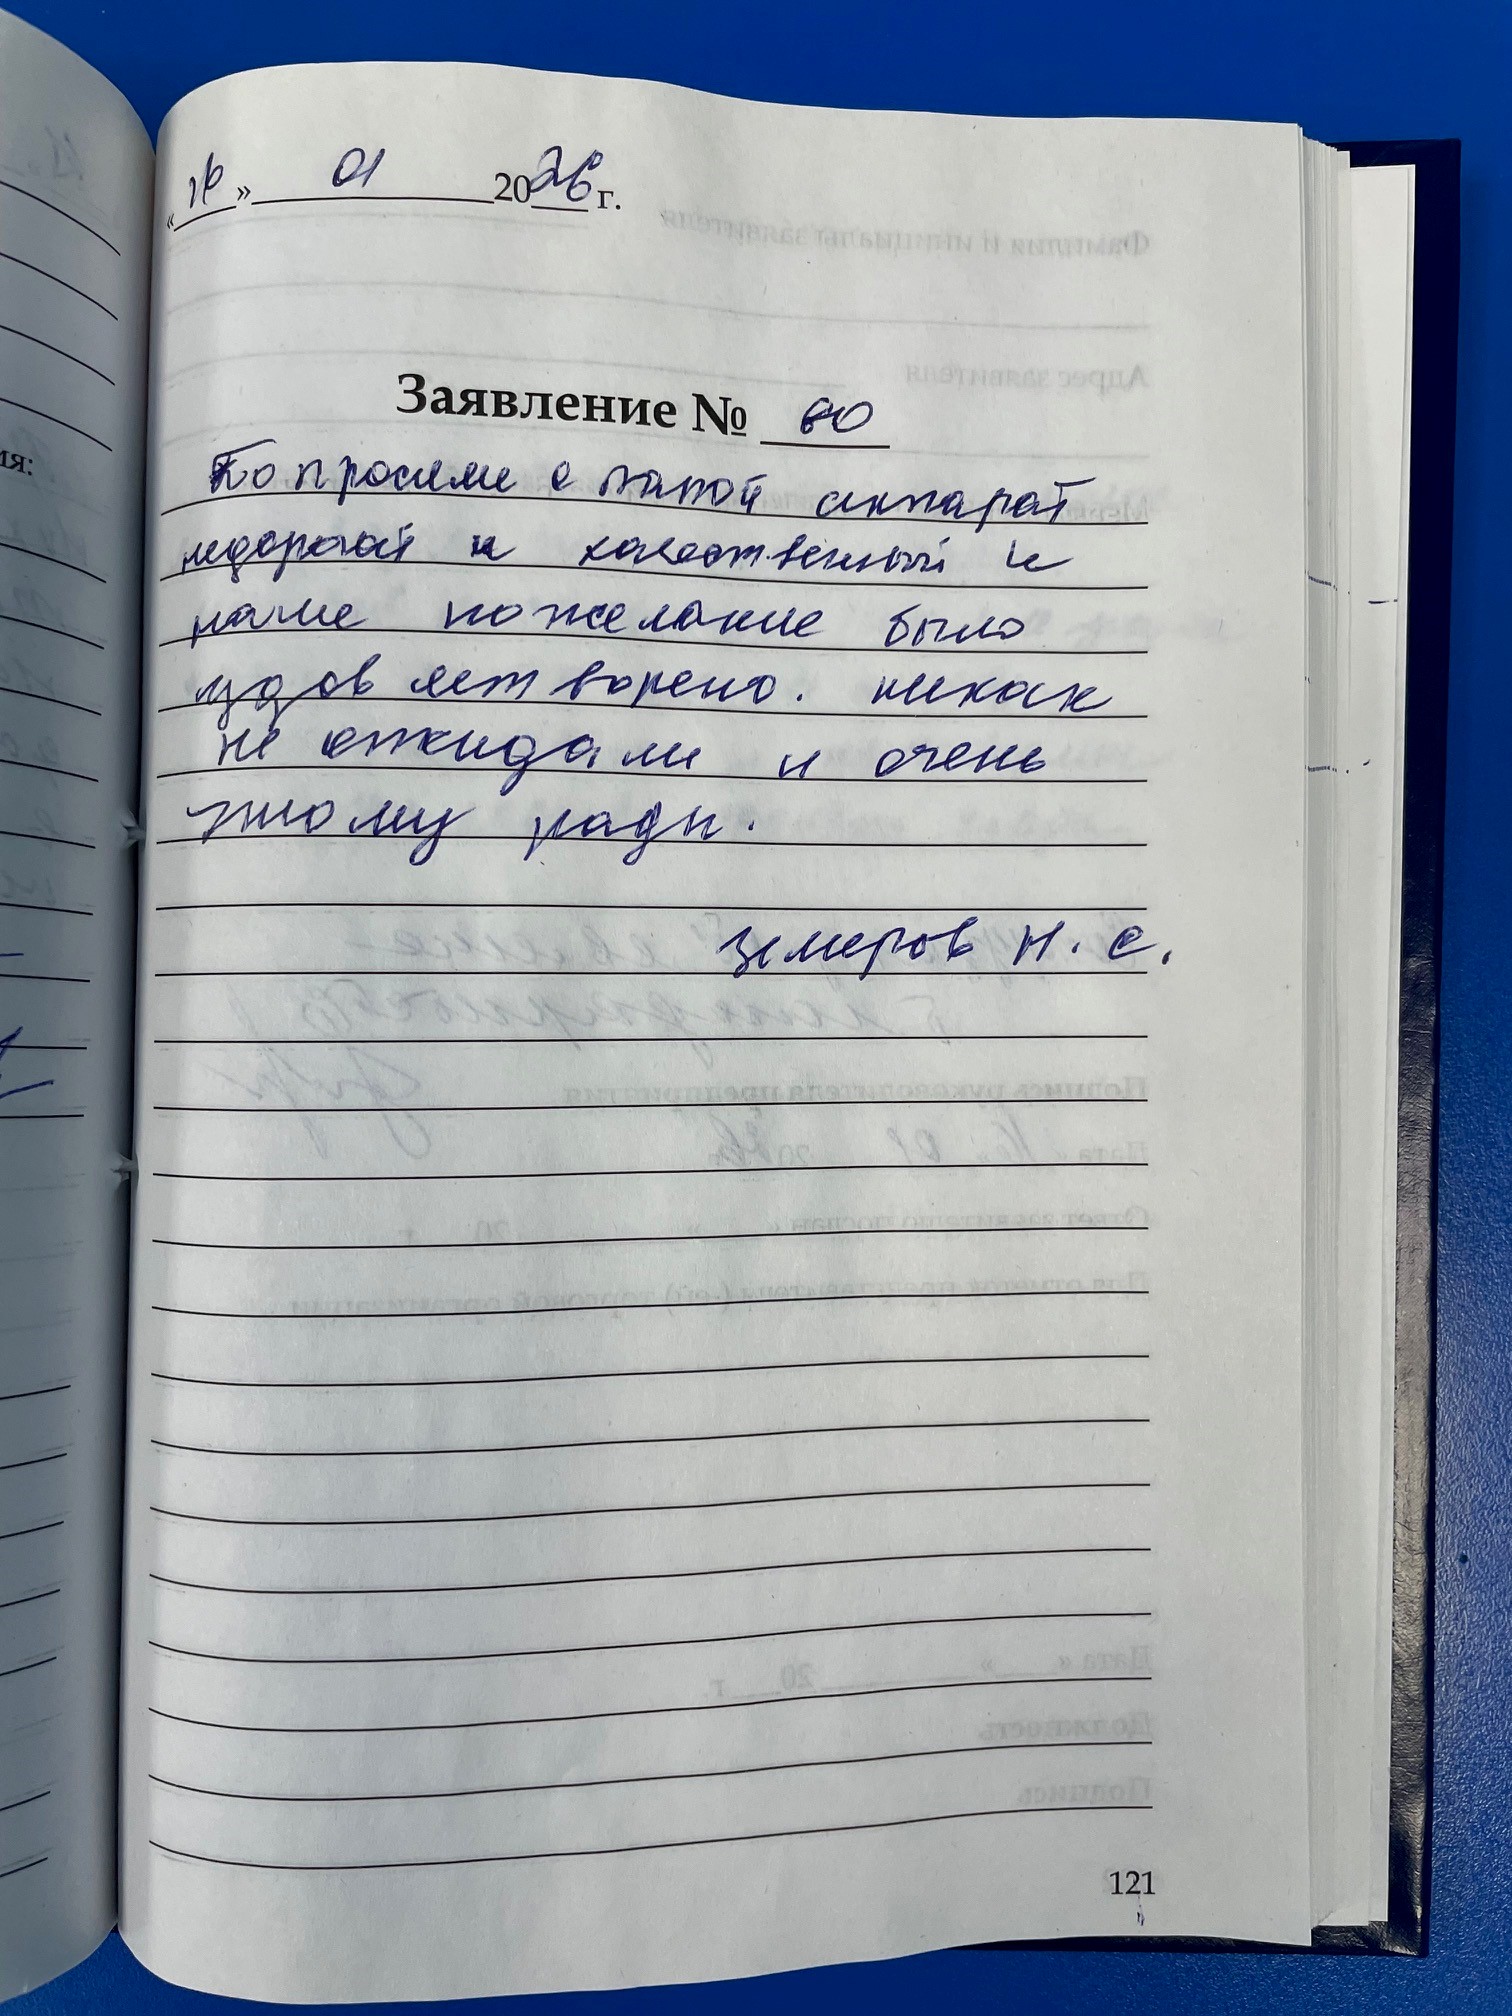 « » 01 2026 г.
Заявление № 60
Попросили с папой аппарат
недорогой и качественный и
наше пожелание было
удовлетворено. никак
не ожидали и очень
этому рады.
Земеров Н. С.
121